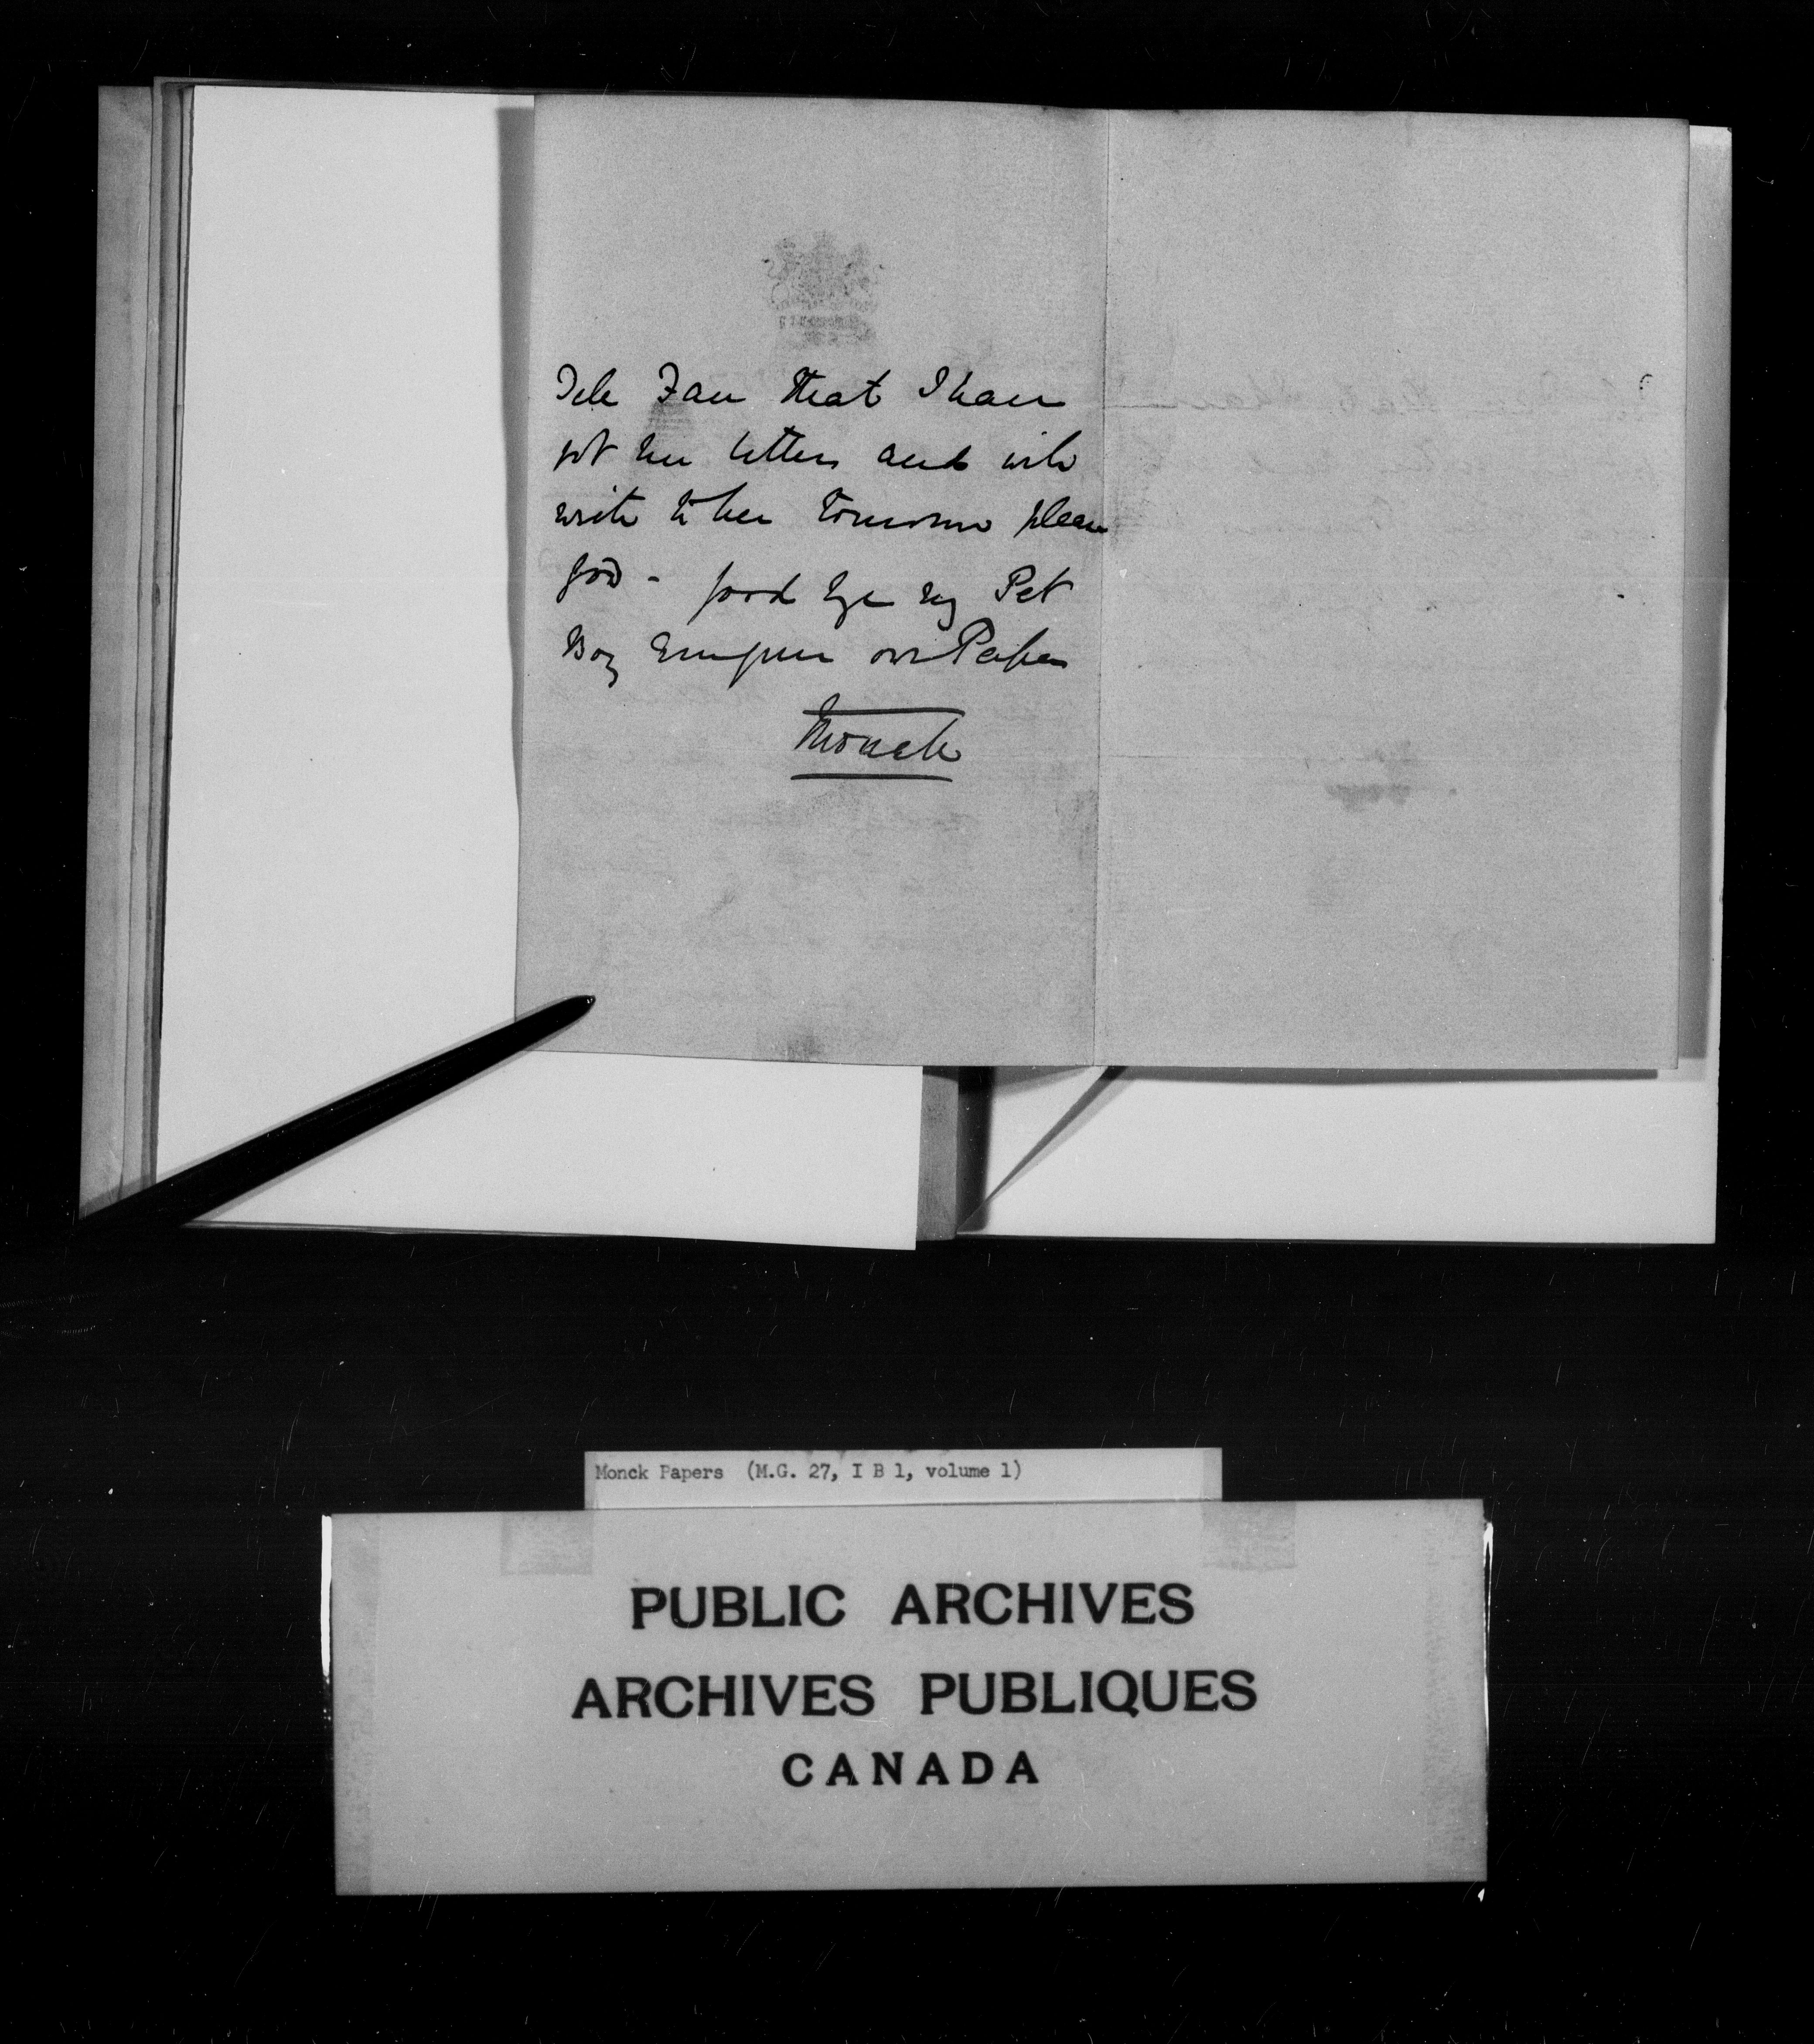 Tell Fan that I have
got her letters and will
write to her tomorrow please
God - good bye my Pet
Boy Ever your own Papa
Monck
Monck Papers (M.G. 27, I B 1, volume 1)
PUBLIC ARCHIVES
ARCHIVES PUBLIQUES
CANADA